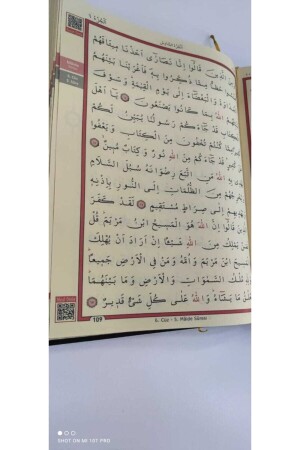 اَلْجُزْءُ ٦
الَّذ۪ينَ قَالُٓوا اِنَّا نَصَارٰٓى اَخَذْنَا م۪يثَاقَهُمْ
حَظًّا مِمَّا ذُكِّرُوا بِه۪ فَاَغْرَيْنَا بَيْنَهُمُ
الْعَدَاوَةَ وَالْبَغْضَٓاءَ اِلٰى يَوْمِ الْقِيٰمَةِ وَسَوْفَ
اللّٰهُ بِمَا كَانُوا يَصْنَعُونَ يَٓا اَهْلَ
الْكِتَابِ قَدْ جَٓاءَكُمْ رَسُولُنَا يُبَيِّنُ لَكُمْ
كُنْتُمْ تُخْفُونَ مِنَ الْكِتَابِ وَيَعْفُوا
قَدْ جَٓاءَكُمْ مِنَ اللّٰهِ نُورٌ وَكِتَابٌ مُب۪ينٌ
اللّٰهُ مَنِ اتَّبَعَ رِضْوَانَهُ سُبُلَ السَّلَامِ
جُهُمْ مِنَ الظُّلُمَاتِ اِلَى النُّورِ بِاِذْنِه۪
د۪يهِمْ اِلٰى صِرَاطٍ مُسْتَق۪يمٍ لَقَدْ كَفَرَ
قَالُٓوا اِنَّ اللّٰهَ هُوَ الْمَس۪يحُ ابْنُ مَرْيَمَ قُلْ
مَنْ يَمْلِكُ مِنَ اللّٰهِ شَيْـًٔا اِنْ اَرَادَ اَنْ يُهْلِكَ
الْمَس۪يحَ ابْنَ مَرْيَمَ وَاُمَّهُ وَمَنْ فِي الْاَرْضِ جَم۪يعًا
مُلْكُ السَّمٰوَاتِ وَالْاَرْضِ وَمَا بَيْنَهُمَا
مَا يَشَٓاءُ وَاللّٰهُ عَلٰى كُلِّ شَيْءٍ قَد۪يرٌ
109
6. Cüz - 5. Mâide Sûresi
SHOT ON MI 10T PRO